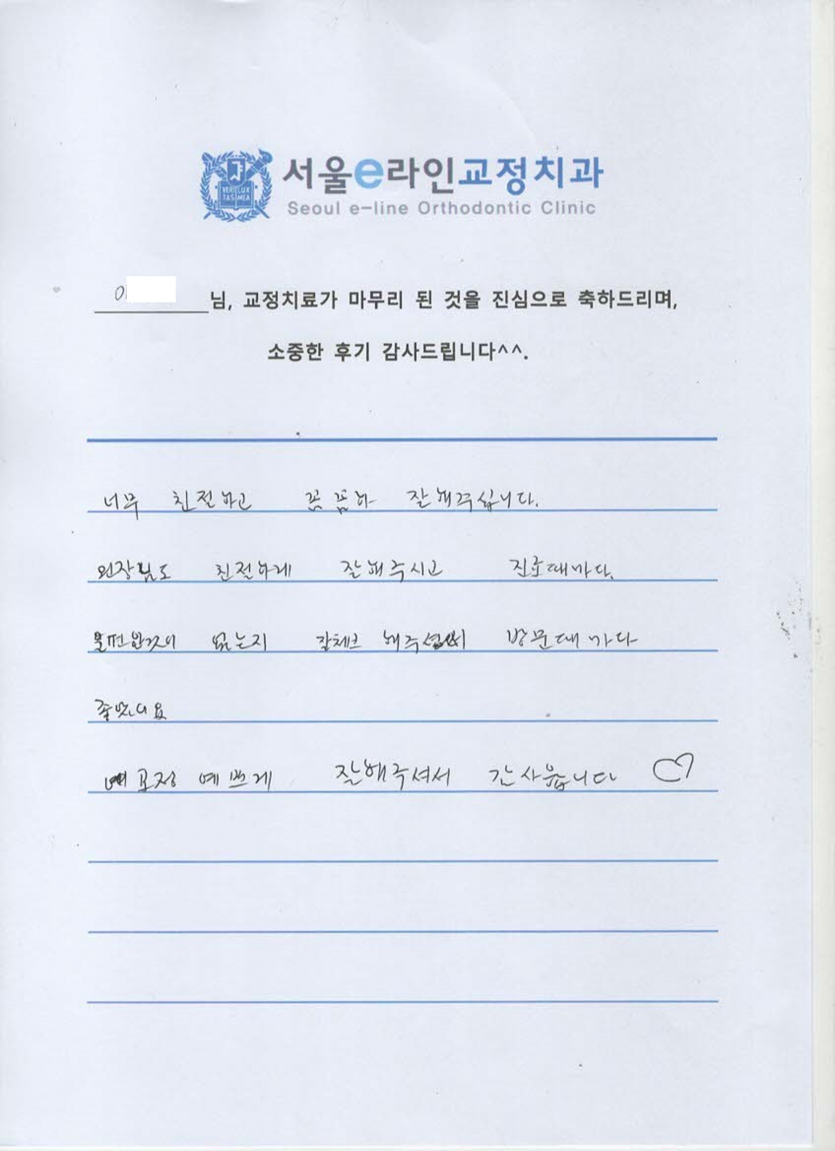 서울e라인교정치과
Seoul e-line Orthodontic Clinic
VERI LUX
TAS MEA
이
님, 교정치료가 마무리 된 것을 진심으로 축하드리며,
소중한 후기 감사드립니다^^.
너무 친절하고 꼼꼼하 잘해주십니다.
원장님도 친절하게 잘해주시고 진료때마다.
불편한것이 없는지 잘체크 해주셨 방문때마다
좋았어요
교정 예쁘게 잘해주셔서 감사합니다 ♡